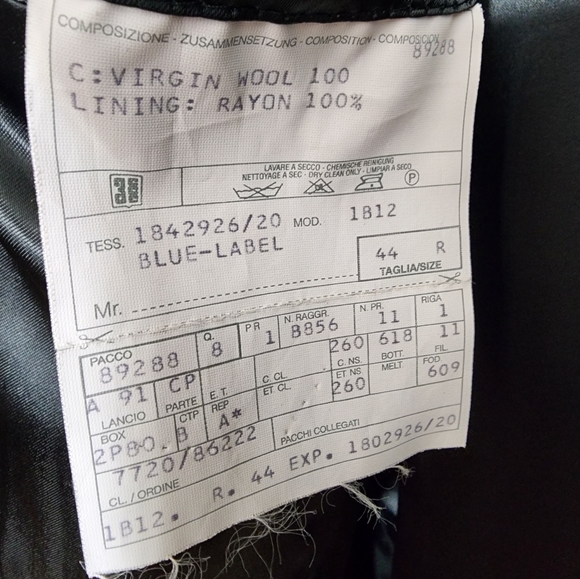 COMPOSIZIONE - ZUSAMMENSETZUNG - COMPOSITION - COMPOSICION
89288
C:VIRGIN WOOL 100
LINING: RAYON 100%
LAVARE A SECCO - CHEMISCHE REINIGUNG
NETTOYAGE A SEC - DRY CLEAN ONLY - LIMPIAR A SECO
P
TESS. 1842926/20 MOD. 1B12
BLUE-LABEL
44 R
TAGLIA/SIZE
Mr.
PACCO 89288
Q. 8
PR 1
N. RAGGR. B856
N. PR. 11
RIGA 1
A 91
LANCIO
CP
PARTE
E.T.
C. CL.
ET CL.
260
C. NS.
ET NS
260
618
BOTT.
MELT.
11
FIL
FOD.
609
BOX
2P80.
CTP
B
REP
A*
7720/86222
CL./ORDINE
PACCHI COLLEGATI
1B12. R. 44 EXP. 1802926/20